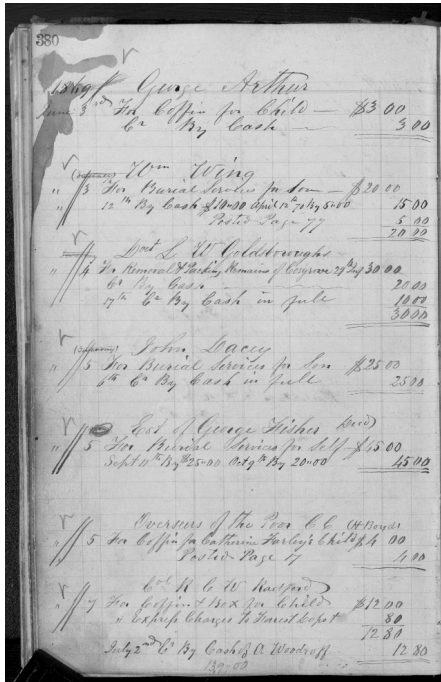 380
1869 George Arthur
June 3rd For Coffin for Child — $3 00
Cr By Cash — 3 00
Wm Wing
" 3 For Burial Services for Son — $20 00
" 12th By Cash $10=00 April 12th 70 By 5=00 15 00
Posted Page 77 5 00
20 00
L W Goldsborough
" 4 For Removal & Packing Remains of Cosgrove 30 00
Cr By Cash — 20 00
17th Cr By Cash in full 10 00
30 00
John Dacey
" 5 For Burial Services for Son $25 00
6th Cr By Cash in full 25 00
Est of George Fisher Decd
" 5 For Burial Services for Self — $45 00
Sept 11th By 25=00 Oct 9th By 20=00 45 00
Overseers of the Poor C C (H Boyd)
" 5 For Coffin for Catherine Farley's Child $4 00
Posted Page 17 4 00
R C W Radford
" 7 For Coffin & Box for Child $12 00
" Express Charges to Forest Depot 80
12 80
July 2nd Cr By Cash of A Woodroff 12 80
139=00